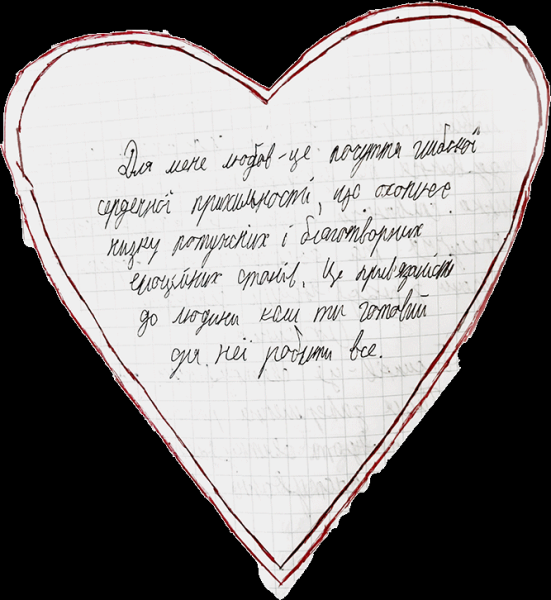 Для мене любов - це почуття глибокої
сердечної прихильності, що охоплює
низку потужних і благотворних
емоційних станів. Це привязаність
до людини коли ти готовий
для неї робити все.